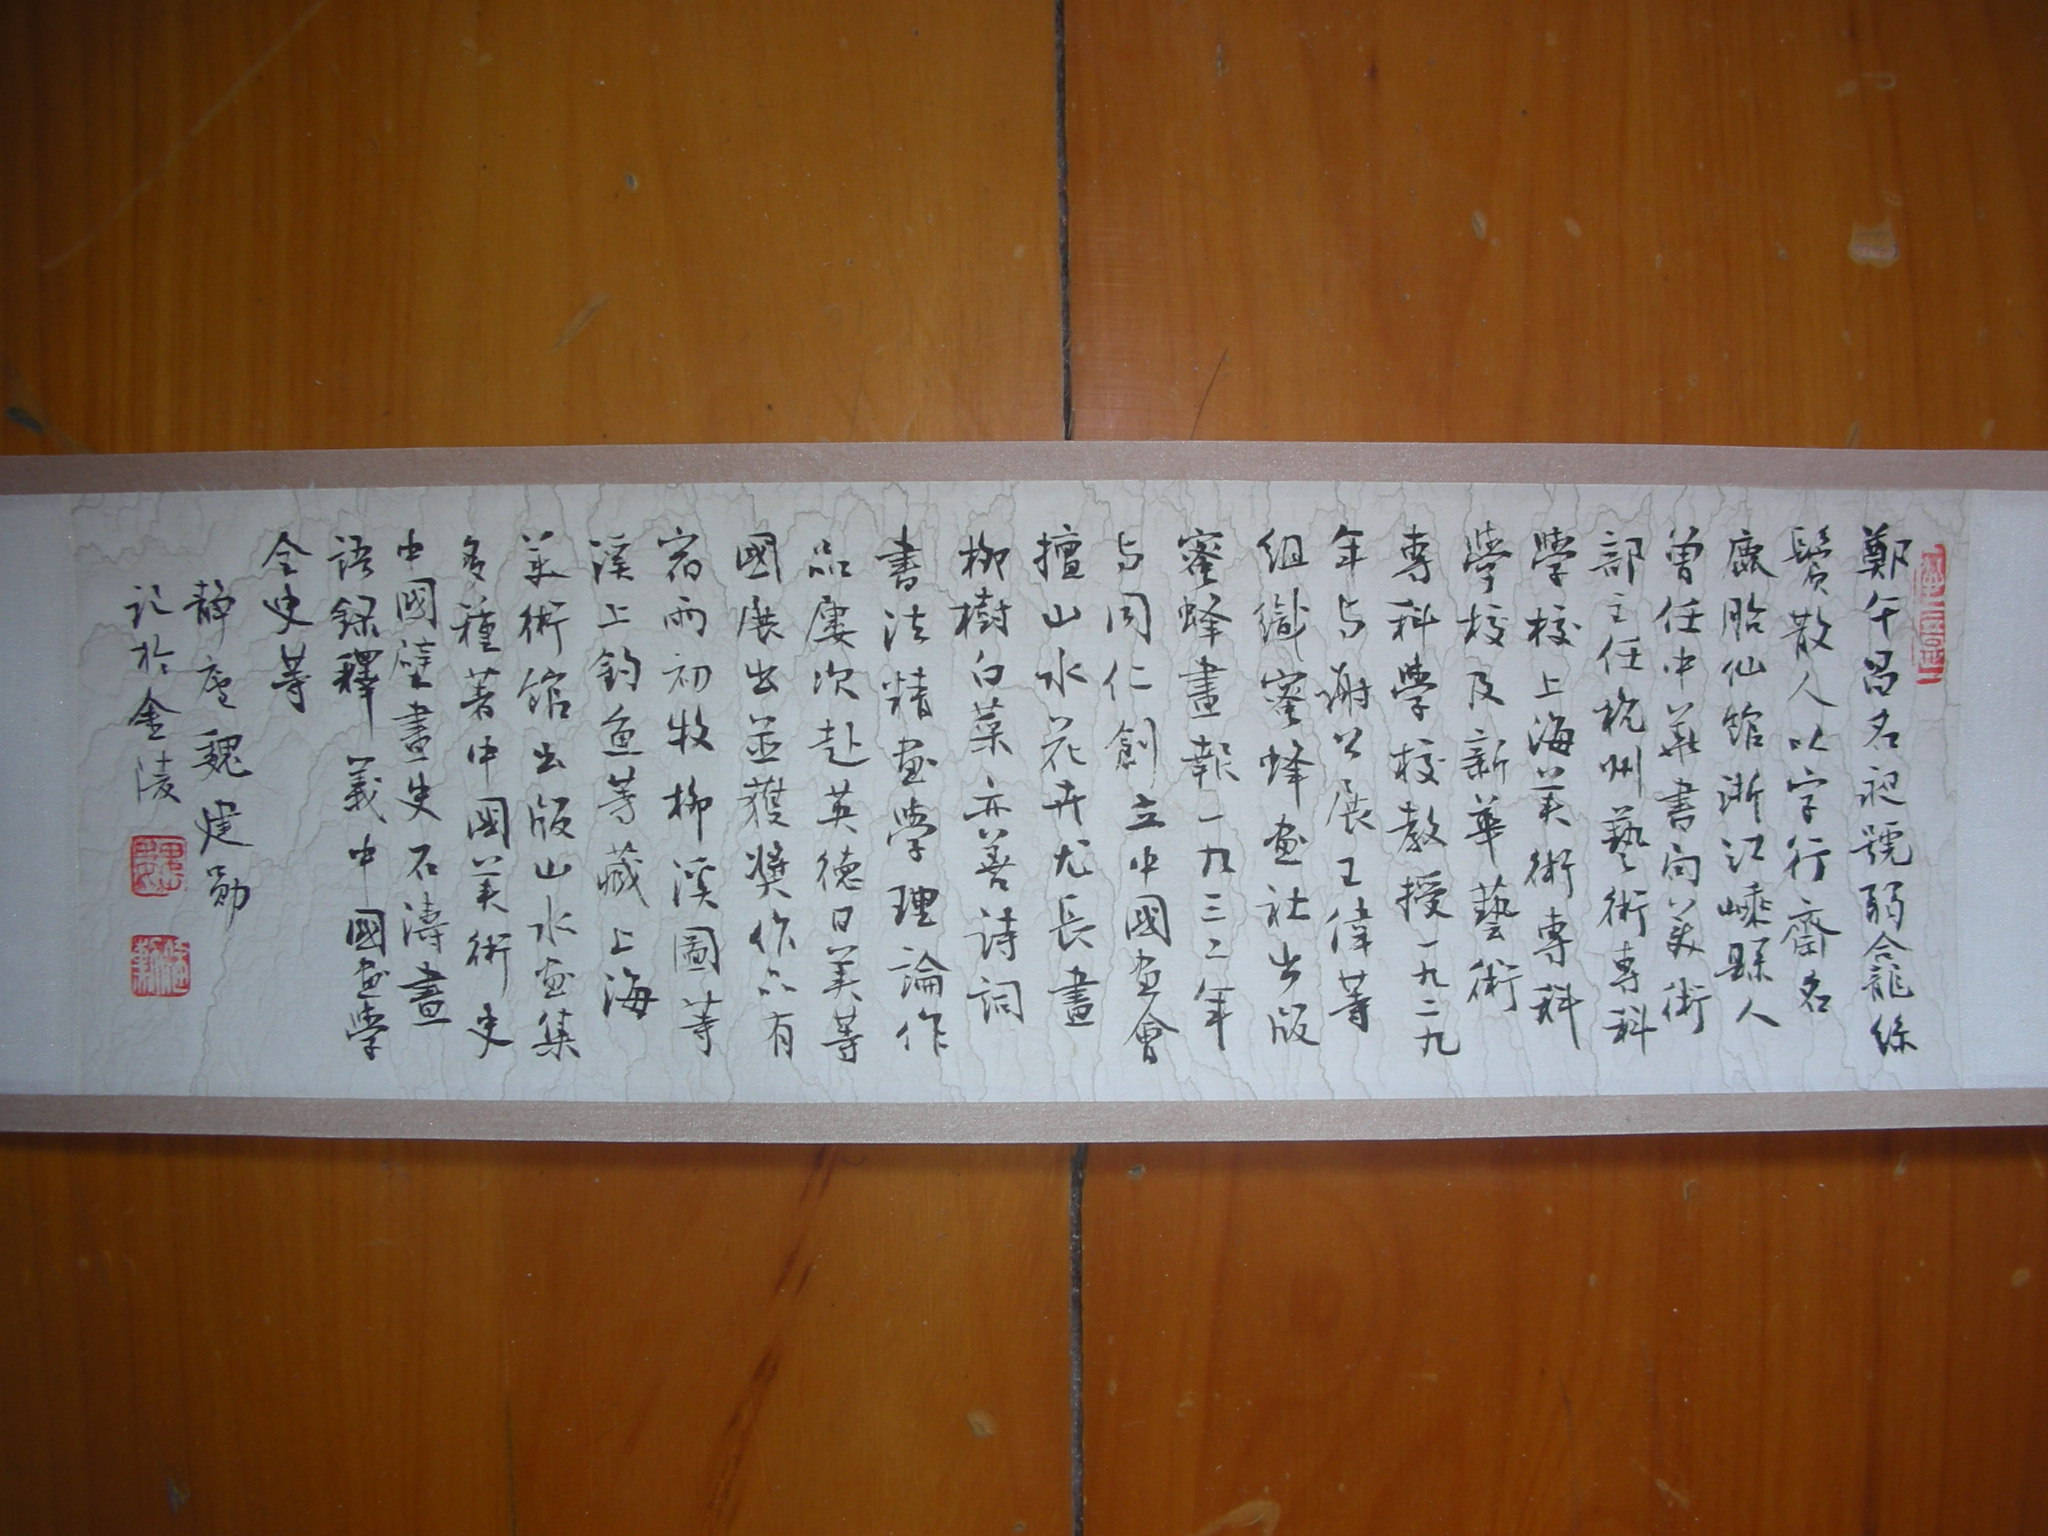 鄭午昌名昶號弱龕絲
鬢散人以字行齋名
鹿胎仙館浙江嵊縣人
曾任中華書局美術
部主任杭州藝術專科
學校上海美術專科
學校及新華藝術
專科學校教授一九二九
年与謝公展王偉等
組織蜜蜂画社出版
蜜蜂畫報一九三二年
与同仁創立中國画會
擅山水花卉尤長畫
柳樹白菜亦善詩詞
書法精画學理論作
品屢次赴英德日美等
國展出並獲獎作品有
宿雨初牧柳溪圖等
溪上釣魚等藏上海
美術館出版山水画集
多種著中國美術史
中國壁畫史石濤畫
語錄釋義中國画學
全史等
靜廬魏建勛
記於金陵